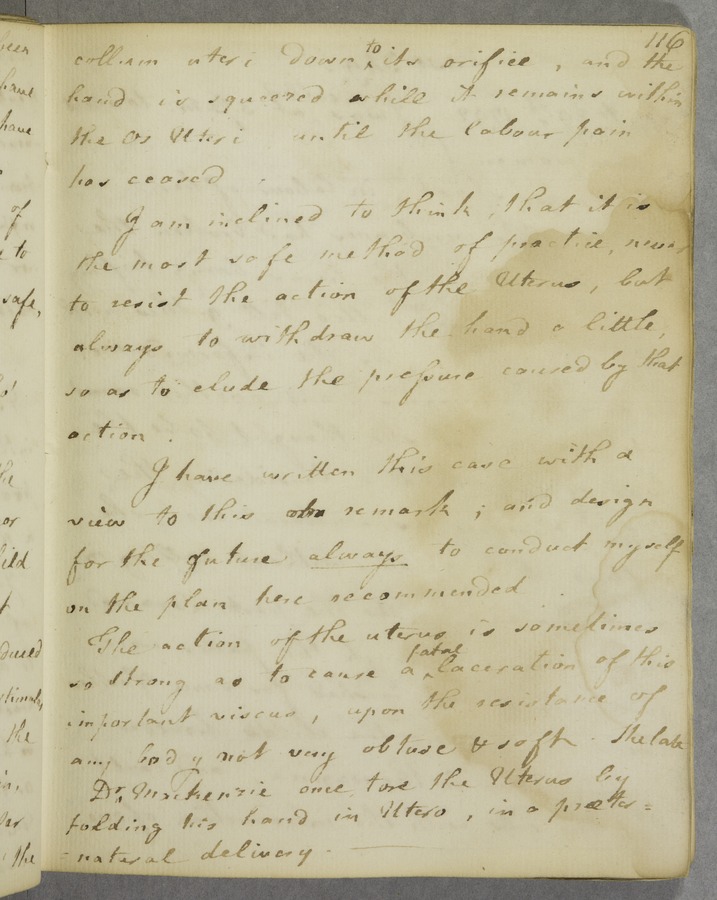 116
collum uteri down to its orifice, and the
hand is squeezed while it remains within
the os Uteri until the labour pain
has ceased.
I am inclined to think, that it is
the most safe method of practice, never
to resist the action of the Uterus, but
always to withdraw the hand a little,
so as to elude the pressure caused by that
action.
I have written this case with a
view to this remark; and design
for the future always to conduct myself
on the plan here recommended.
The action of the uterus is sometimes
so strong as to cause a fatal laceration of this
important viscus, upon the resistance of
any body not very obtuse & soft. The late
Dr. Mackenzie once tore the Uterus by
folding his hand in Utero, in a præter=
=natural delivery.